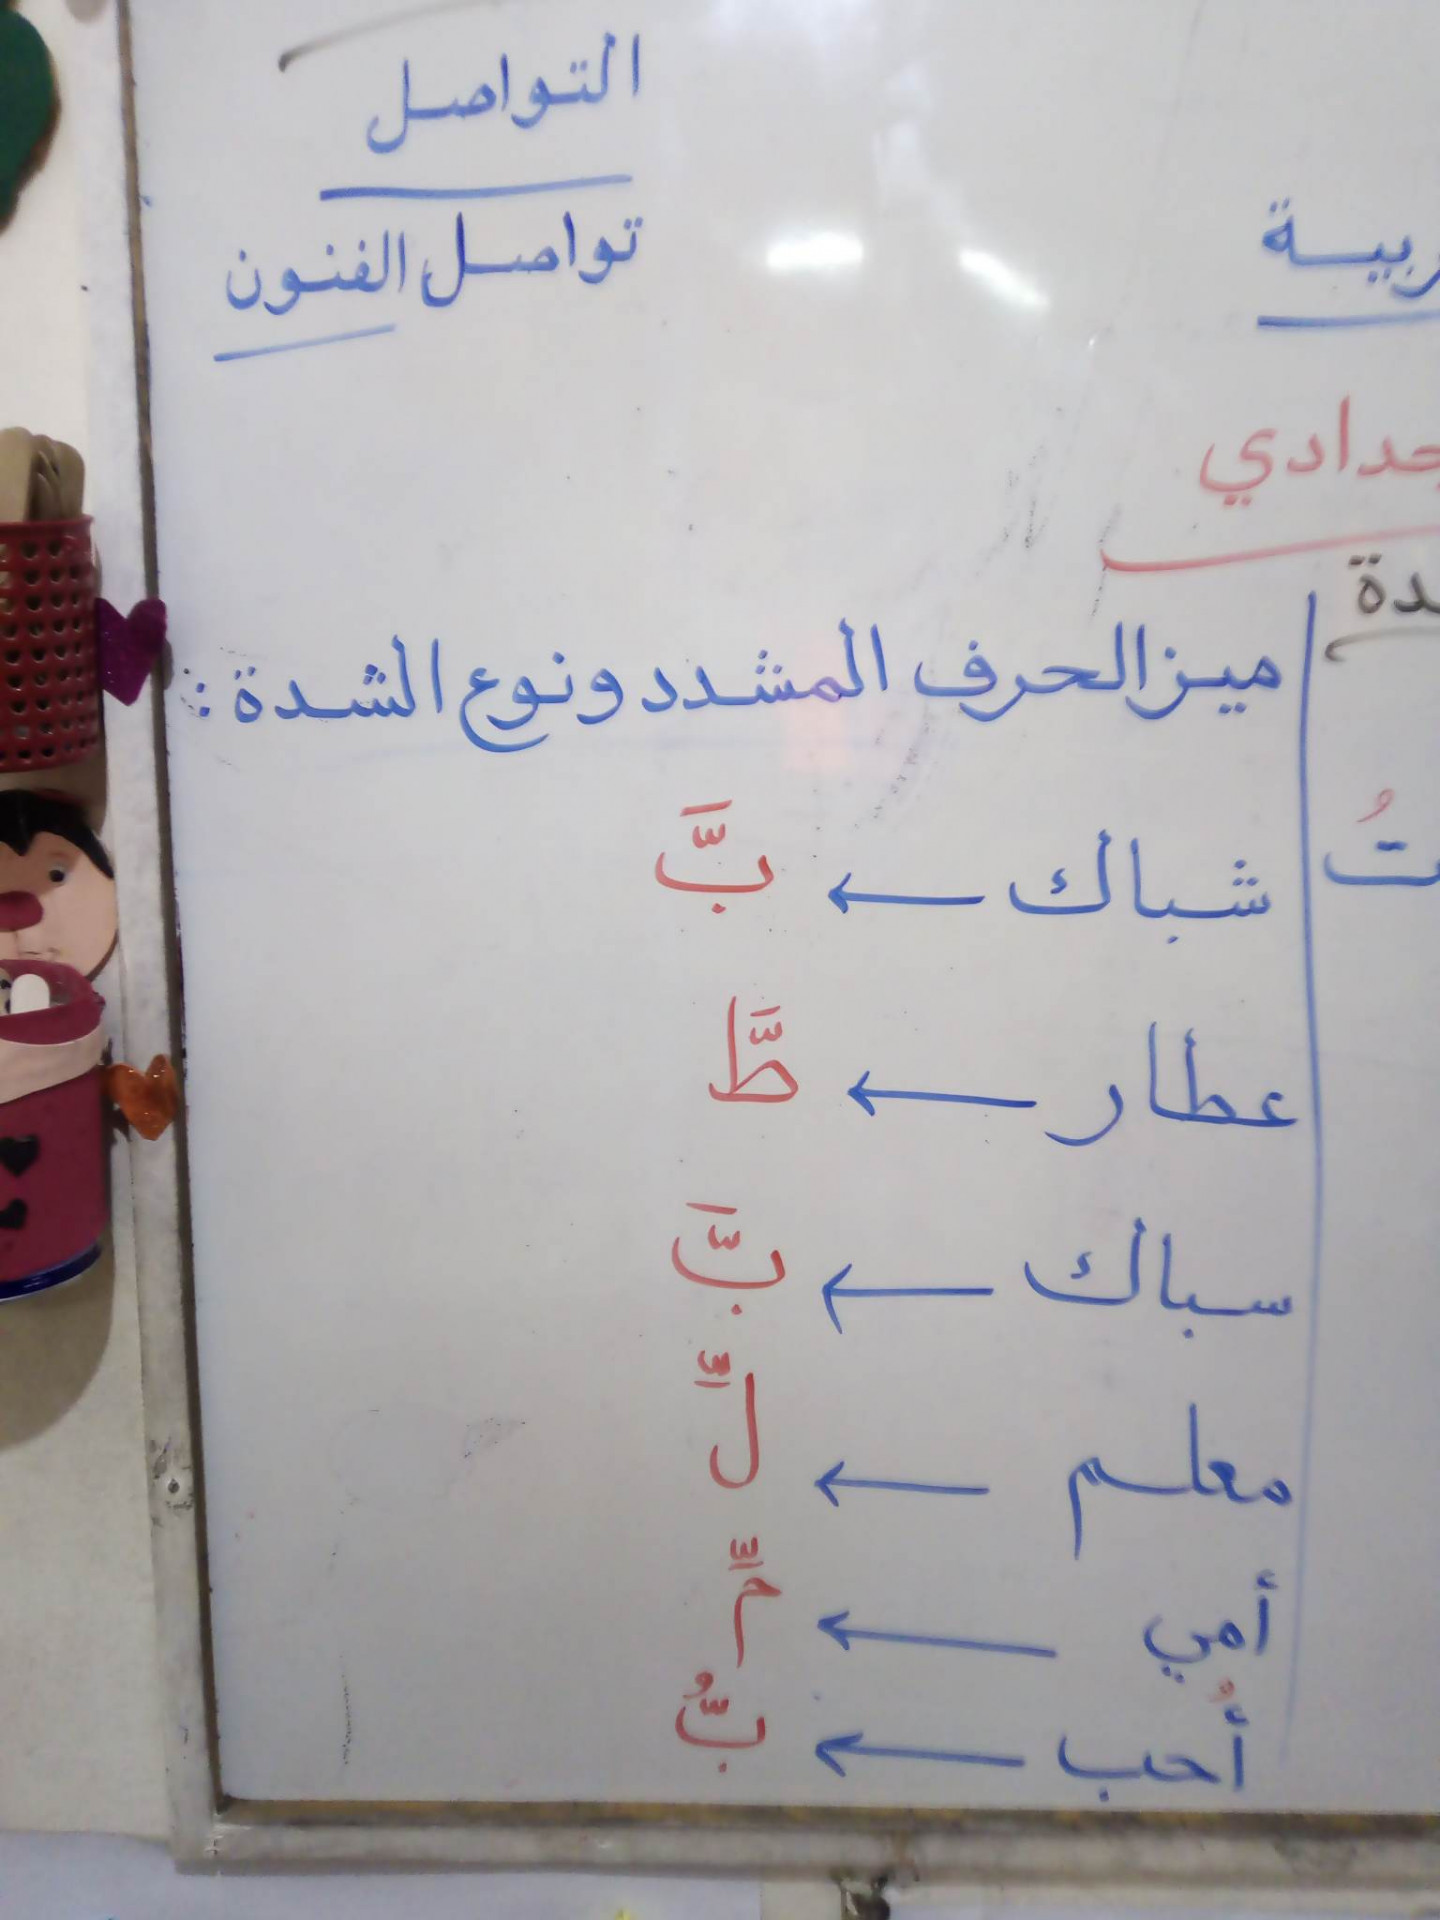 التواصل
تواصل الفنون
ميز الحرف المشدد ونوع الشدة :
شباك ← بَّ
عطار ← طَّ
سباك ← بَّ
معلم ← لِّ
أمي ← مِّ
أُحب ← بُّ